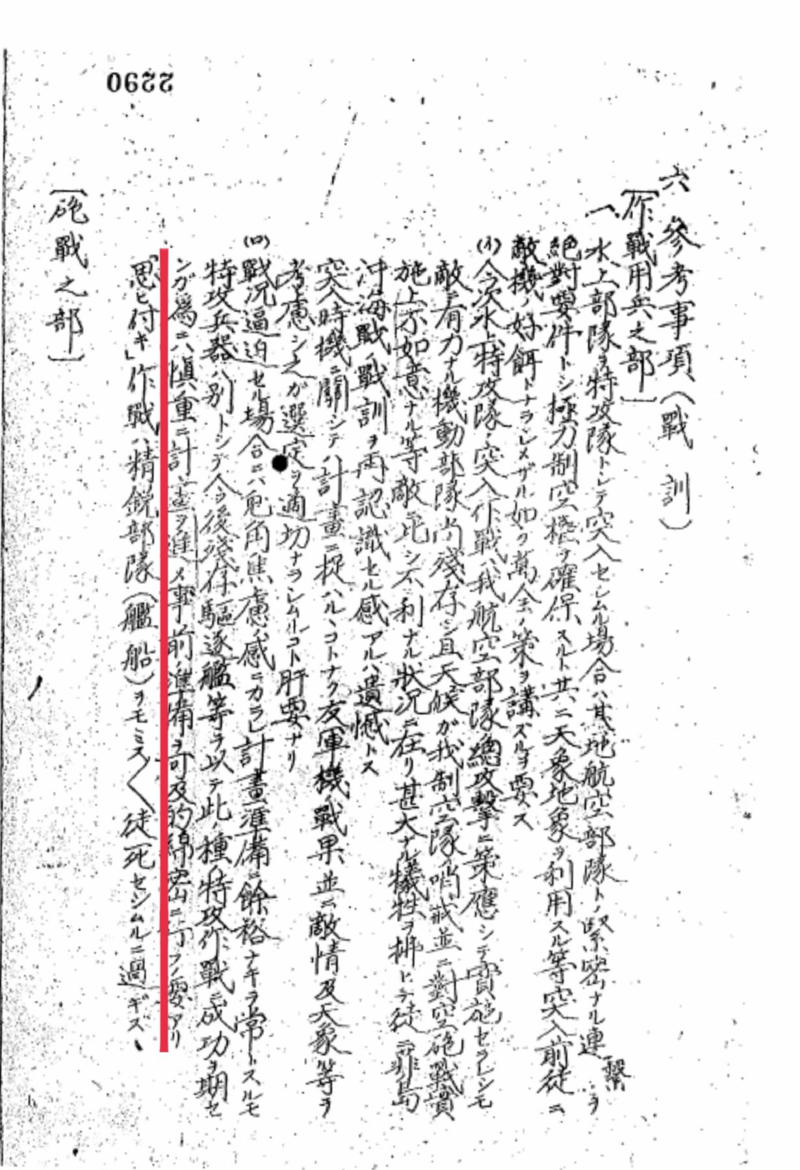 六、參考事項(戰訓)
〔作戰用兵之部〕
一、水上部隊ヲ特攻隊トシテ突入セシムル場合ハ基地航空部隊トノ緊密ナル連繫ヲ
絕對要件トシ極力制空權ヲ確保スルト共ニ天象地象ヲ利用スル等突入前徒ニ
敵機ノ好餌トナラシメザル如ク萬全ノ策ヲ講ズルヲ要ス
(イ)今次水上特攻隊ノ突入作戰ハ我航空部隊ノ總攻擊ニ策應シテ實施セラレシモ
敵ニ有力ナル機動部隊尚殘存シ且天候ガ我制空隊哨戒並ニ對空砲戰實
施上不如意ナル等敵ニ比シ不利ナル狀況ニ在リ甚大ナル犧牲ヲ拂ヒテ徒ニ非島
沖海戰ノ戰訓ヲ再認識セル感アルハ遺憾トス
突入時機ニ關シテハ計畫ニ捉ハルヽコトナク友軍機戰果並ニ敵情及天象等ヲ
考慮シ之ガ選定ヲ適切ナラシムルコト肝要ナリ
(ロ)戰況逼迫セル場合ニハ兎角焦慮ノ感ニカラレ計畫準備ニ餘裕ナキヲ常トスルモ
特攻兵器ハ別トシテ今後殘存驅逐艦等ヲ以テ此ノ種ノ特攻作戰ニ成功ヲ期セ
ンガ爲ニハ愼重ニ計畫ヲ進メ事前ノ準備ヲ可及的綿密ニ行フノ要アリ
「思ヒ付キ」作戰ハ精銳部隊(艦船)ヲモミスミス徒死セシムルニ過ギズ
〔砲戰之部〕
2290